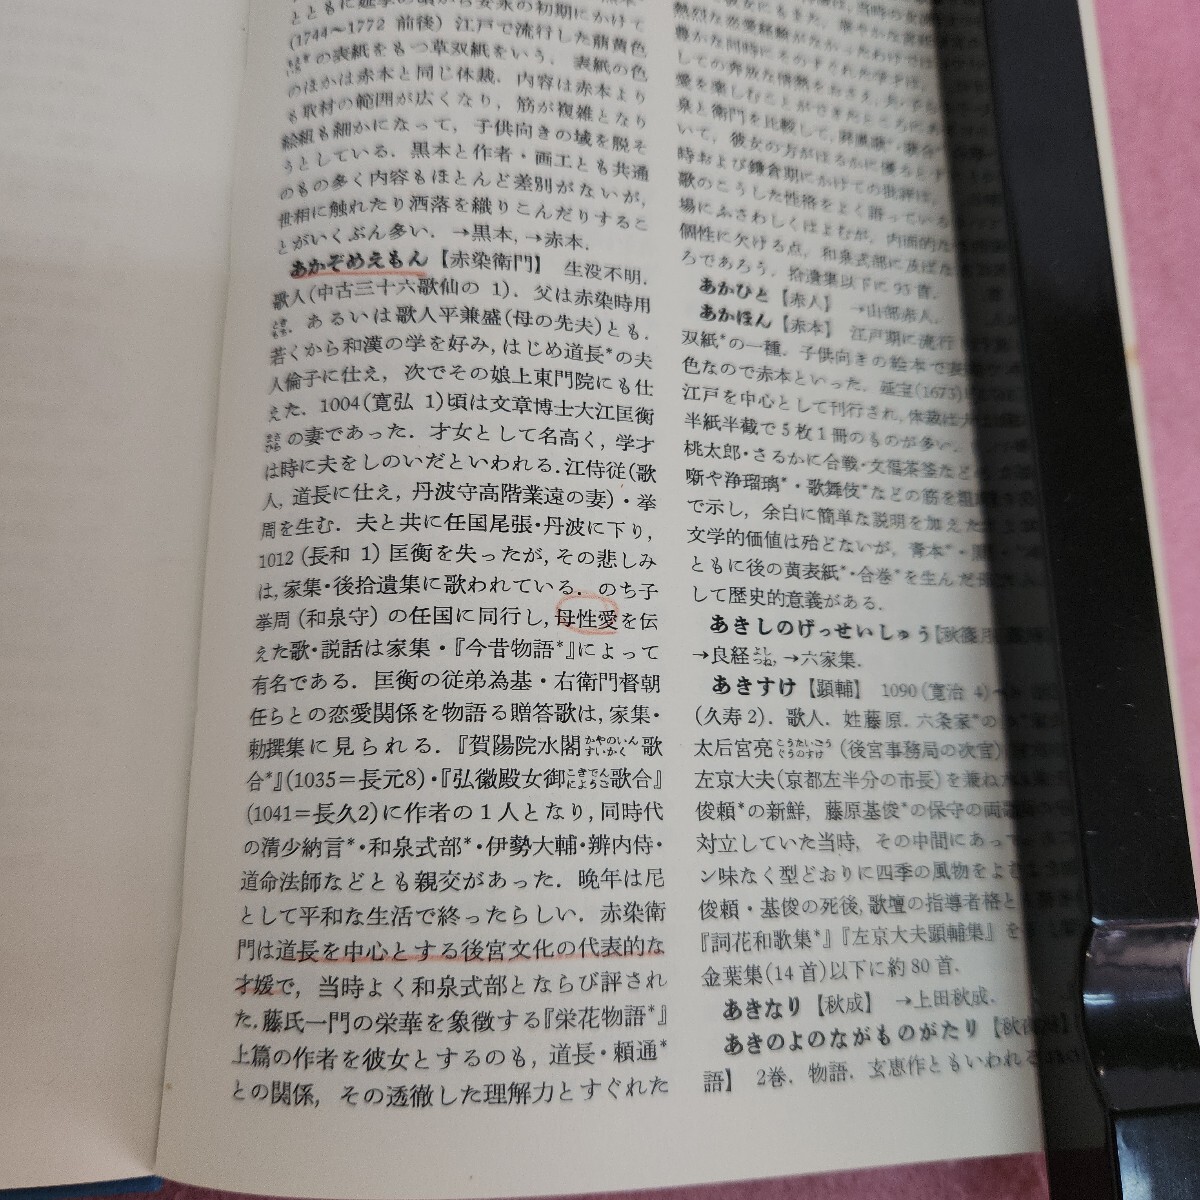 とともに延享の頃から安永の初期にかけて
(1744～1772 前後) 江戸で流行した萠黄色
の表紙をもつ草双紙をいう．表紙の色
のほかは赤本と同じ体裁．内容は赤本より
も取材の範囲が広くなり，筋が複雑となり
絵組も細かになって，子供向きの域を脱そ
うとしている．黒本と作者・画工とも共通
のもの多く内容もほとんど差別がないが，
世相に触れたり洒落を織りこんだりするこ
とがいくぶん多い．→黒本，→赤本．
あかぞめえもん【赤染衛門】 生没不明．
歌人(中古三十六歌仙の 1)．父は赤染時用
ときもち，あるいは歌人平兼盛(母の先夫)とも．
若くから和漢の学を好み，はじめ道長*の夫
人倫子に仕え，次でその娘上東門院にも仕
えた．1004(寛弘 1)頃は文章博士大江匡衡
まさひらの妻であった．才女として名高く，学才
は時に夫をしのいだといわれる．江侍従(歌
人，道長に仕え，丹波守高階業遠の妻)・挙
周を生む．夫と共に任国尾張・丹波に下り，
1012 (長和 1) 匡衡を失ったが，その悲しみ
は，家集・後拾遺集に歌われている．のち子
挙周 (和泉守) の任国に同行し，母性愛を伝
えた歌・説話は家集・『今昔物語*』によって
有名である．匡衡の従弟為基・右衛門督朝
任らとの恋愛関係を物語る贈答歌は，家集・
勅撰集に見られる．『賀陽院水閣かやのいんすいかく歌
合*』(1035＝長元8)・『弘徽殿女御こきでんにようご歌合』
(1041＝長久2)に作者の 1 人となり，同時代
の清少納言*・和泉式部*・伊勢大輔・辨内侍・
道命法師などとも親交があった．晩年は尼
として平和な生活で終ったらしい．赤染衛
門は道長を中心とする後宮文化の代表的な
才媛で，当時よく和泉式部とならび評され
た．藤氏一門の栄華を象徴する『栄花物語*』
上篇の作者を彼女とするのも，道長・頼通*
との関係，その透徹した理解力とすぐれた
熱烈な恋愛経験がなかったわけでは
豊かな同時にそのすぐれた学才は，
しての奔放な情熱をおさえ，
愛を楽しむことができたところに
泉と衛門を比較して，屛風歌*・歌合*
いて，彼女の方がはるかに優ると
時および鎌倉期にかけての批評は，
歌のこうした性格をよく語っている
場にふさわしくはよむが，内面的な
個性に欠ける点，和泉式部に及ばな
ろであろう．拾遺集以下に 93 首．
あかひと【赤人】 →山部赤人．
あかほん【赤本】 江戸期に流行
双紙*の一種．子供向きの絵本で表
色なので赤本といった．延宝(1673)
江戸を中心として刊行され，体裁は
半紙半截で 5 枚 1 冊のものが多い．
桃太郎・さるかに合戦・文福茶釜など
噺や浄瑠璃*・歌舞伎*などの筋を
で示し，余白に簡単な説明を加えた
文学的価値は殆どないが，青本*・黒
ともに後の黄表紙*・合巻*を生んだ
して歴史的意義がある．
あきしのげっせいしゅう【秋篠月
→良経よしつね，→六家集．
あきすけ【顕輔】 1090(寛治 4)～
(久寿 2)．歌人．姓藤原．六条家*の
太后宮亮こうたいごうぐうのすけ (後宮事務局の次官)
左京大夫(京都左半分の市長)を兼ね
俊頼*の新鮮，藤原基俊*の保守の両
対立していた当時，その中間にあって
ン味なく型どおりに四季の風物をよ
俊頼・基俊の死後，歌壇の指導者格と
『詞花和歌集*』『左京大夫顕輔集』を
金葉集(14 首)以下に約 80 首．
あきなり【秋成】 →上田秋成．
あきのよのながものがたり【秋
語】 2巻．物語．玄恵作ともいわれる